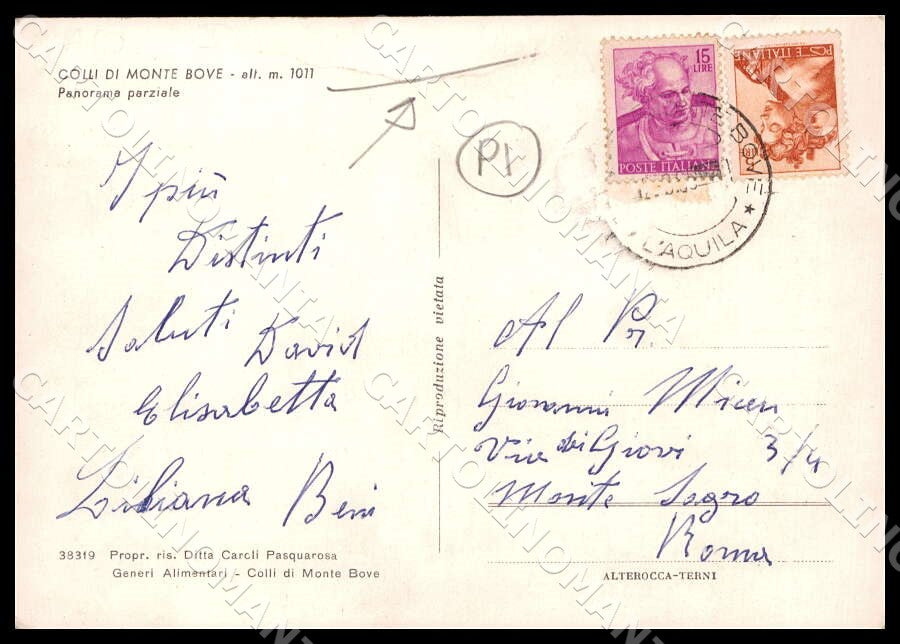 COLLI DI MONTE BOVE - alt. m. 1011
Panorama parziale
15
LIRE
POSTE ITALIANE
POSTE ITALIANE
L'AQUILA *
P1
I più
Distinti
Saluti David
Elisabetta
Liliana Beni
Riproduzione vietata
Al Pr.
Giovanni
Via dei Giovi 3/4
Monte Sagro
Roma
38319 Propr. ris. Ditta Caroli Pasquarosa
Generi Alimentari - Colli di Monte Bove
ALTEROCCA-TERNI
CARTOMANIA